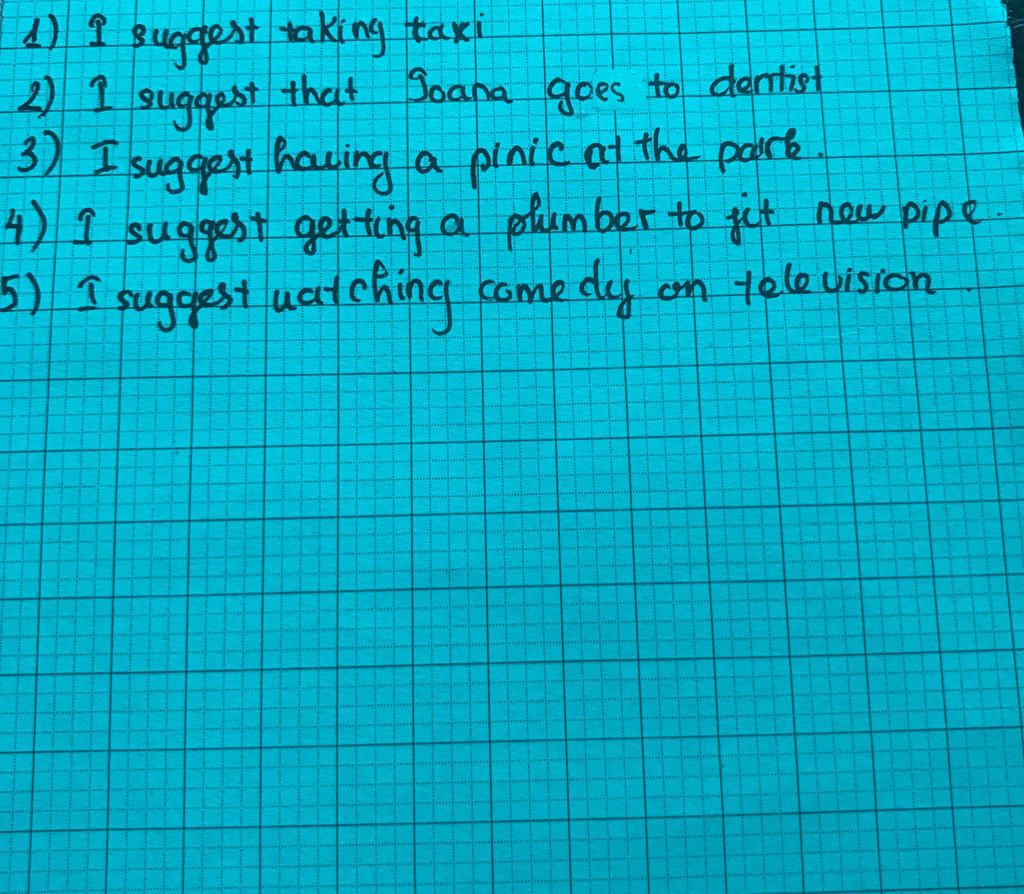 1) I suggest taking taxi
2) I suggest that Joana goes to dentist
3) I suggest having a pinic at the park.
4) I suggest getting a plumber to fit new pipe.
5) I suggest watching comedy on television.